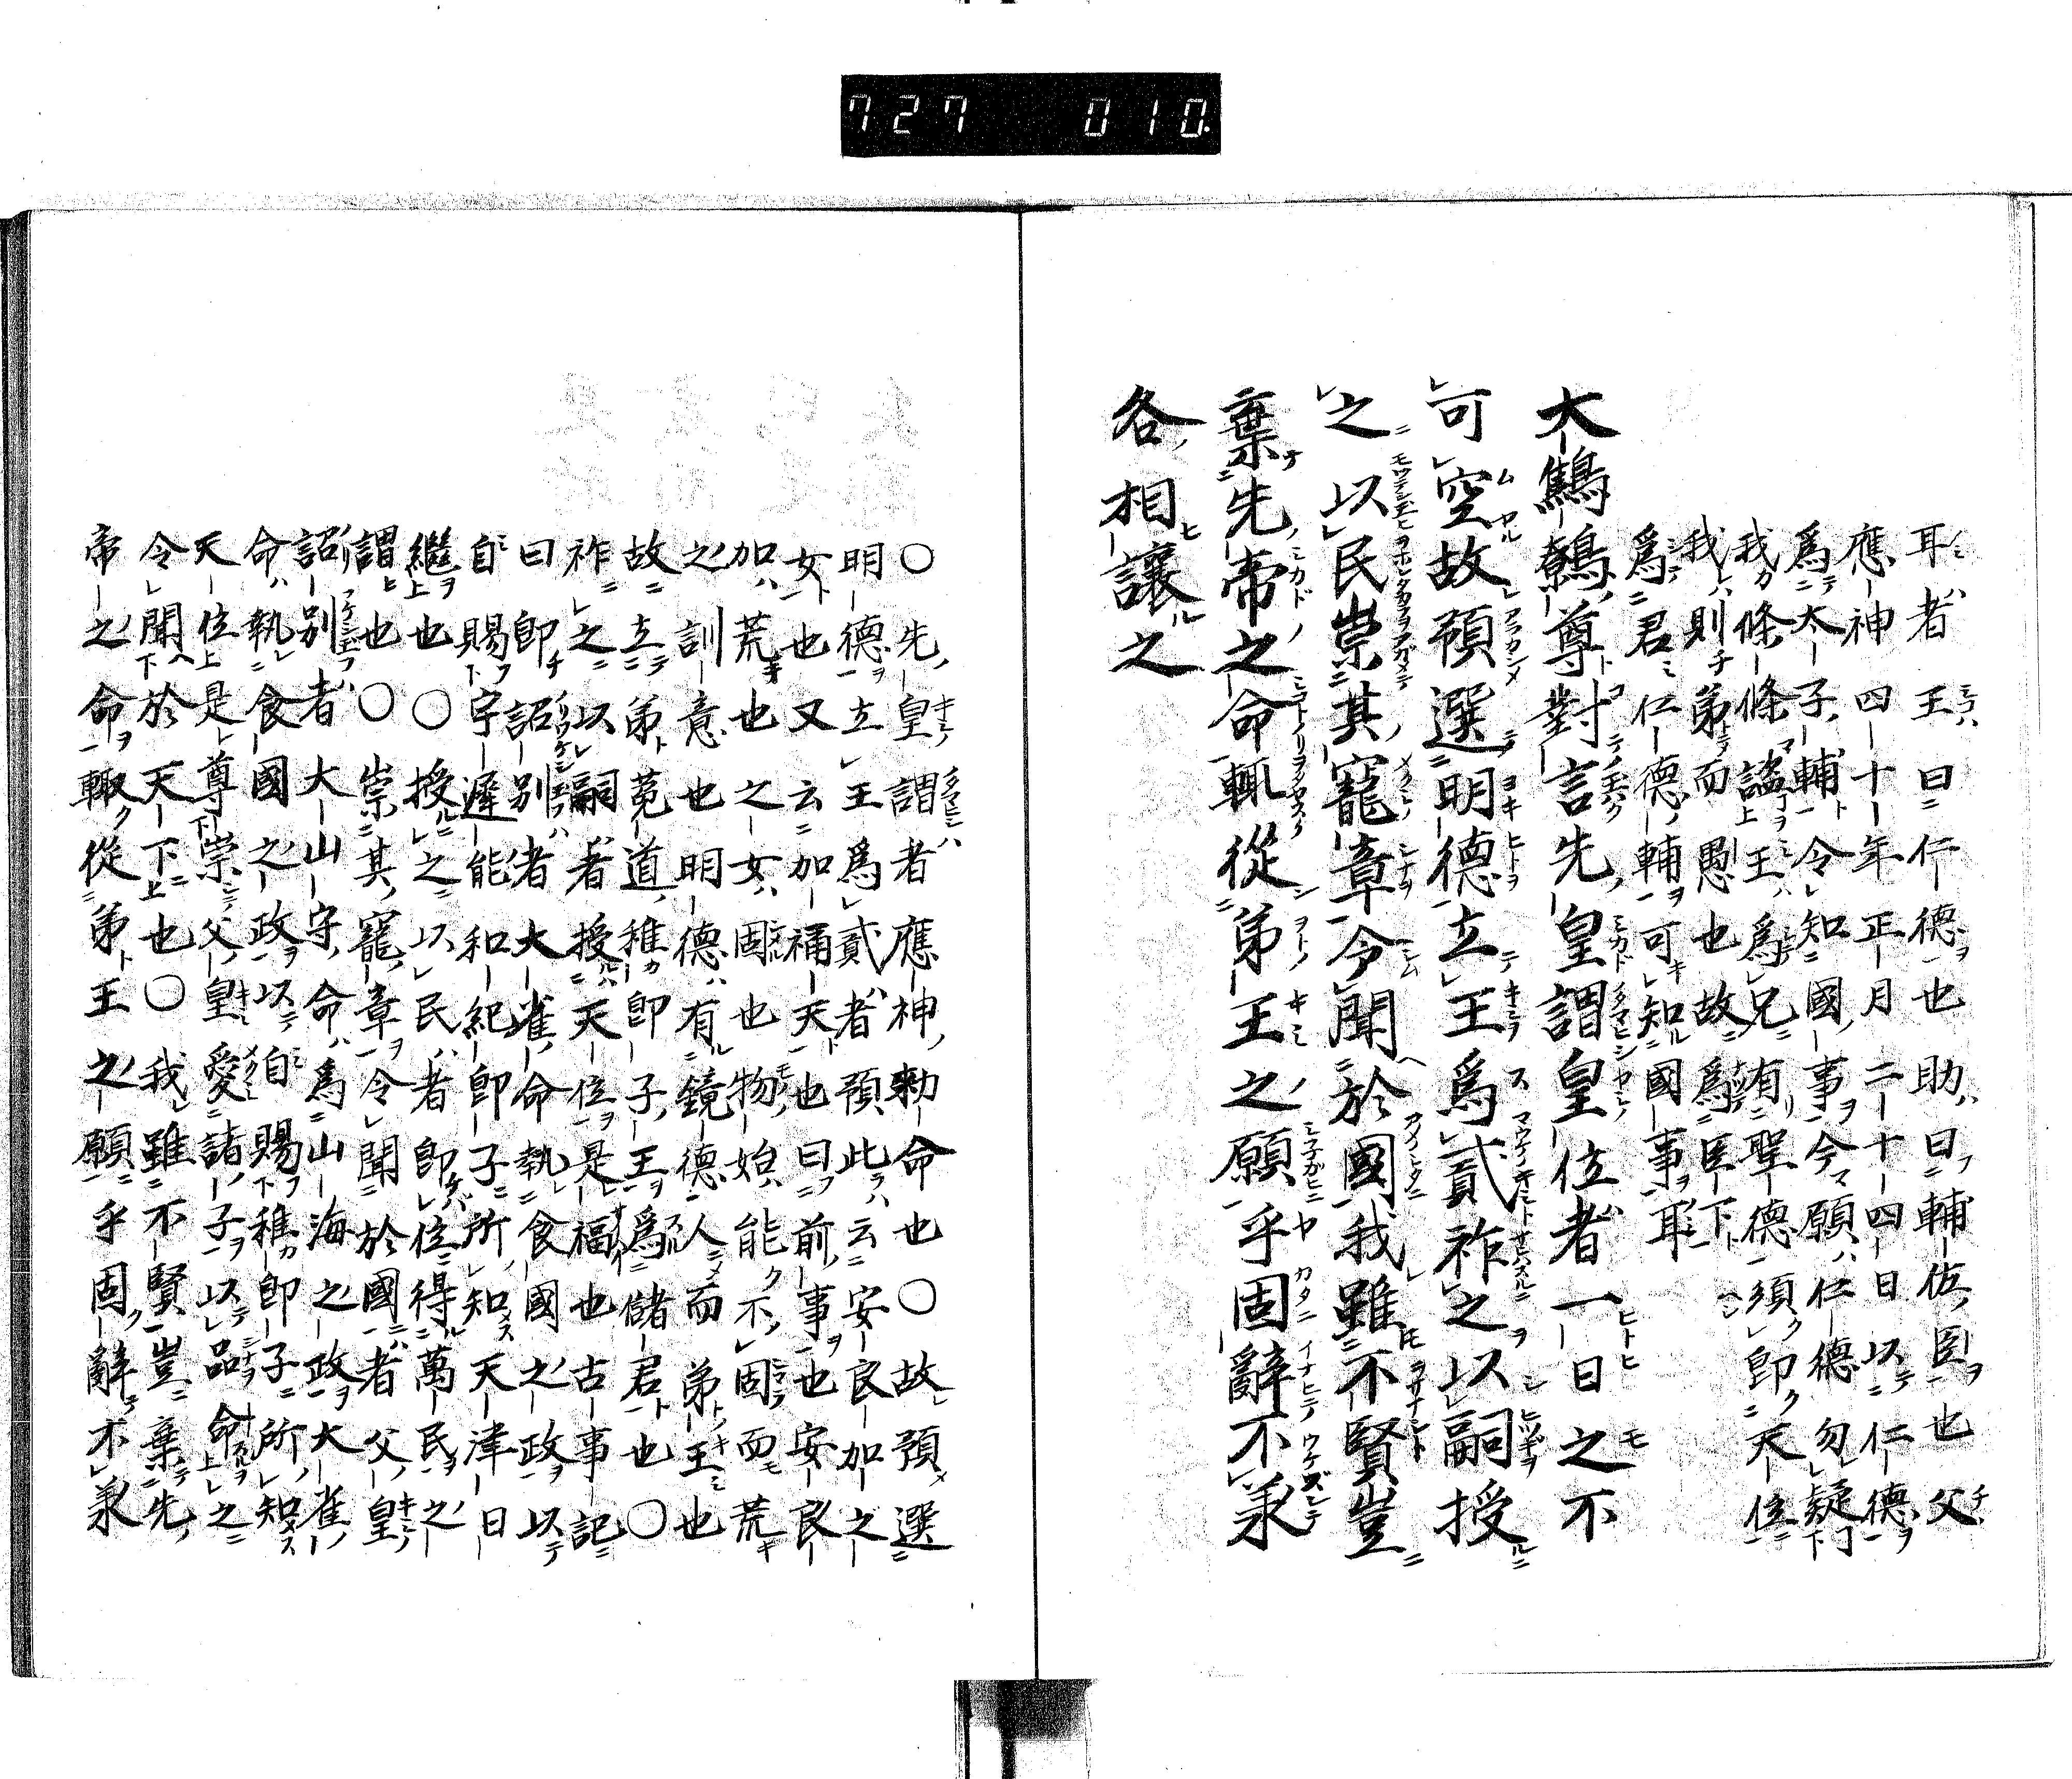 727 010.
耳者王曰仁德也助曰輔佐臣也父
應神四十年正月二十四日以仁德
爲太子輔令知國事今願仁德勿疑
我條條謐王爲兄有聖德須卽天位
我則弟而愚也故爲臣下
爲君仁德輔可知國事耳
大鷦鷯尊對言先皇謂皇位者一日之不
可空故預選明德立王爲貳祚之以嗣授
之以民崇其寵章令聞於國我雖不賢豈
棄先帝之命輒從弟王之願乎固辭不承
各相讓之
〇先皇謂者應神勅命也〇故預選
明德立王爲貳者預此云安良加之
女也又云加禰天也曰前事也安良
加荒也之女固也物始能不固而荒
之訓意也明德有鏡德人而弟王也
故立弟菟道稚卽子王爲儲君也〇
祚之以嗣者授天位是福也古事記
曰卽詔別者大雀命執食國之政以
自賜宇遲能和紀卽子所知天津日
繼也〇授之以民者卽位得萬民之
謂也〇崇其寵章令聞於國者父皇
詔別者大山守命爲山海之政大雀
命執食國之政以自賜稚卽子所知
天位是尊崇父皇愛諸子以品命之
令聞於天下也〇我雖不賢豈棄先
帝之命輒從弟王之願乎固辭不承